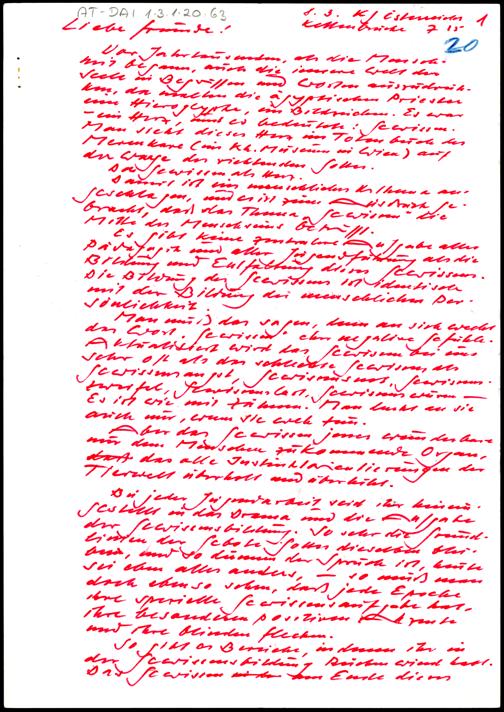 AT-DAI 1.3.1.20.63
1
7 15
20
Liebe Freunde!
Vor Jahrtausenden, als die Mensch-
heit begann, auch die innere Welt der
Seele in Begriffen und Worten auszudrük-
ken, da malten die ägyptischen Priester
eine Hieroglyphe in Bildzeichen. Es war
ein Herz, und es bedeutet: Gewissen.
Man sieht dieses Herz im Totenbuch des
(im Kh. Museum in Wien) auf
der Waage der richtenden Götter.
Das Gewissen als Herz.
Damit ist ein menschliches Urthema an-
geschlagen, und es ist zum Ausdruck ge-
bracht, daß das Thema "Gewissen" die
Mitte des Menschseins betrifft.
Es gibt keine zentralere Aufgabe aller
Pädagogik und aller Jugendführung als die
Bildung und Entfaltung dieses Gewissens.
Die Bildung des Gewissens ist identisch
mit der Bildung der menschlichen Per-
sönlichkeit.
Man muß das sagen, denn an sich weckt
das Wort "Gewissen" eher negative Gefühle.
Aktualisiert wird das Gewissen bei uns
sehr oft als das schlechte Gewissen, als
Gewissensangst, Gewissensnot, Gewissens-
zweifel, Gewissenslast, Gewissenswurm —
Es ist wie mit Zähnen. Man denkt an sie
auch nur, wenn sie weh tun.
Aber das Gewissen jenes wunderbare
nur dem Menschen zukommende Organ,
das alle Instinktorientierungen der
Tierwelt überholt und überhöht.
Bei jeder Jugendarbeit seid ihr hinein-
gestellt in das Drama und die Aufgabe
der Gewissensbildung. So sehr die Grund-
linien der Gebote Gottes dieselben blei-
ben, und so dumm der Spruch ist, heute
sei eben alles anders, — so muß man
doch ebenso sehen, daß jede Epoche
ihre spezielle Gewissensaufgabe hat,
ihre besonderen positiven Akzente
und ihre blinden Flecken.
So gibt es Bereiche, in denen ihr in
der Gewissensbildung Rückenwind habt.
Das Gewissen Ende dieses